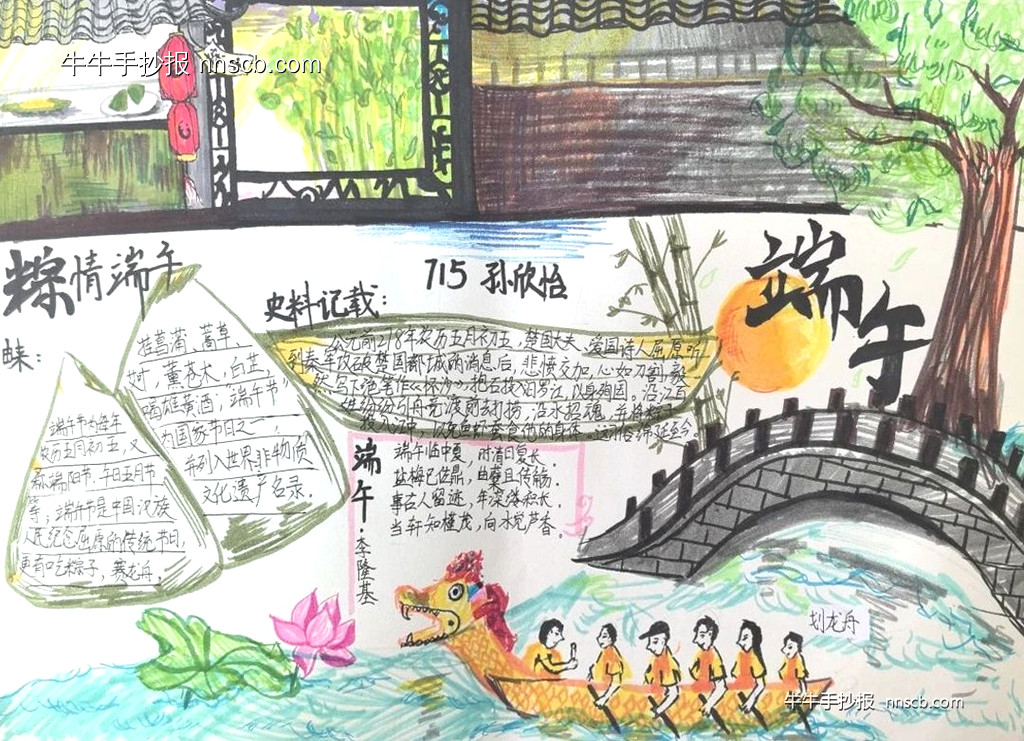 牛牛手抄报 nnscb.com
粽情端午
由来:
端午节为每年
农历五月初五,又
称端阳节、午日五月节
等,端午节是中国汉族
人民纪念屈原的传统节日,
更有吃粽子,赛龙舟。
挂菖蒲、蒿草、
艾叶,薰苍术、白芷
喝雄黄酒;"端午节"
为国家节日之一,
并列入世界非物质
文化遗产名录.
715 孙欣怡
史料记载:
公元前278年农历五月初五,楚国大夫、爱国诗人屈原听
到秦军攻破楚国都城的消息后,悲愤交加,心如刀割,毅
然写下绝笔作《怀沙》,抱石投汨罗江,以身殉国。沿江百
姓纷纷引舟竞渡前去打捞,沿水招魂,并将粽子
投入江中,以免鱼虾蚕食他的身体。这习俗绵延至今
端午·李隆基
端午临中夏,时清日复长.
盐梅已佐鼎,曲糵且传觞.
事古人留迹,年深缕积长.
当轩知槿茂,向水觉芦香.
端午
划龙舟
牛牛手抄报 nnscb.com